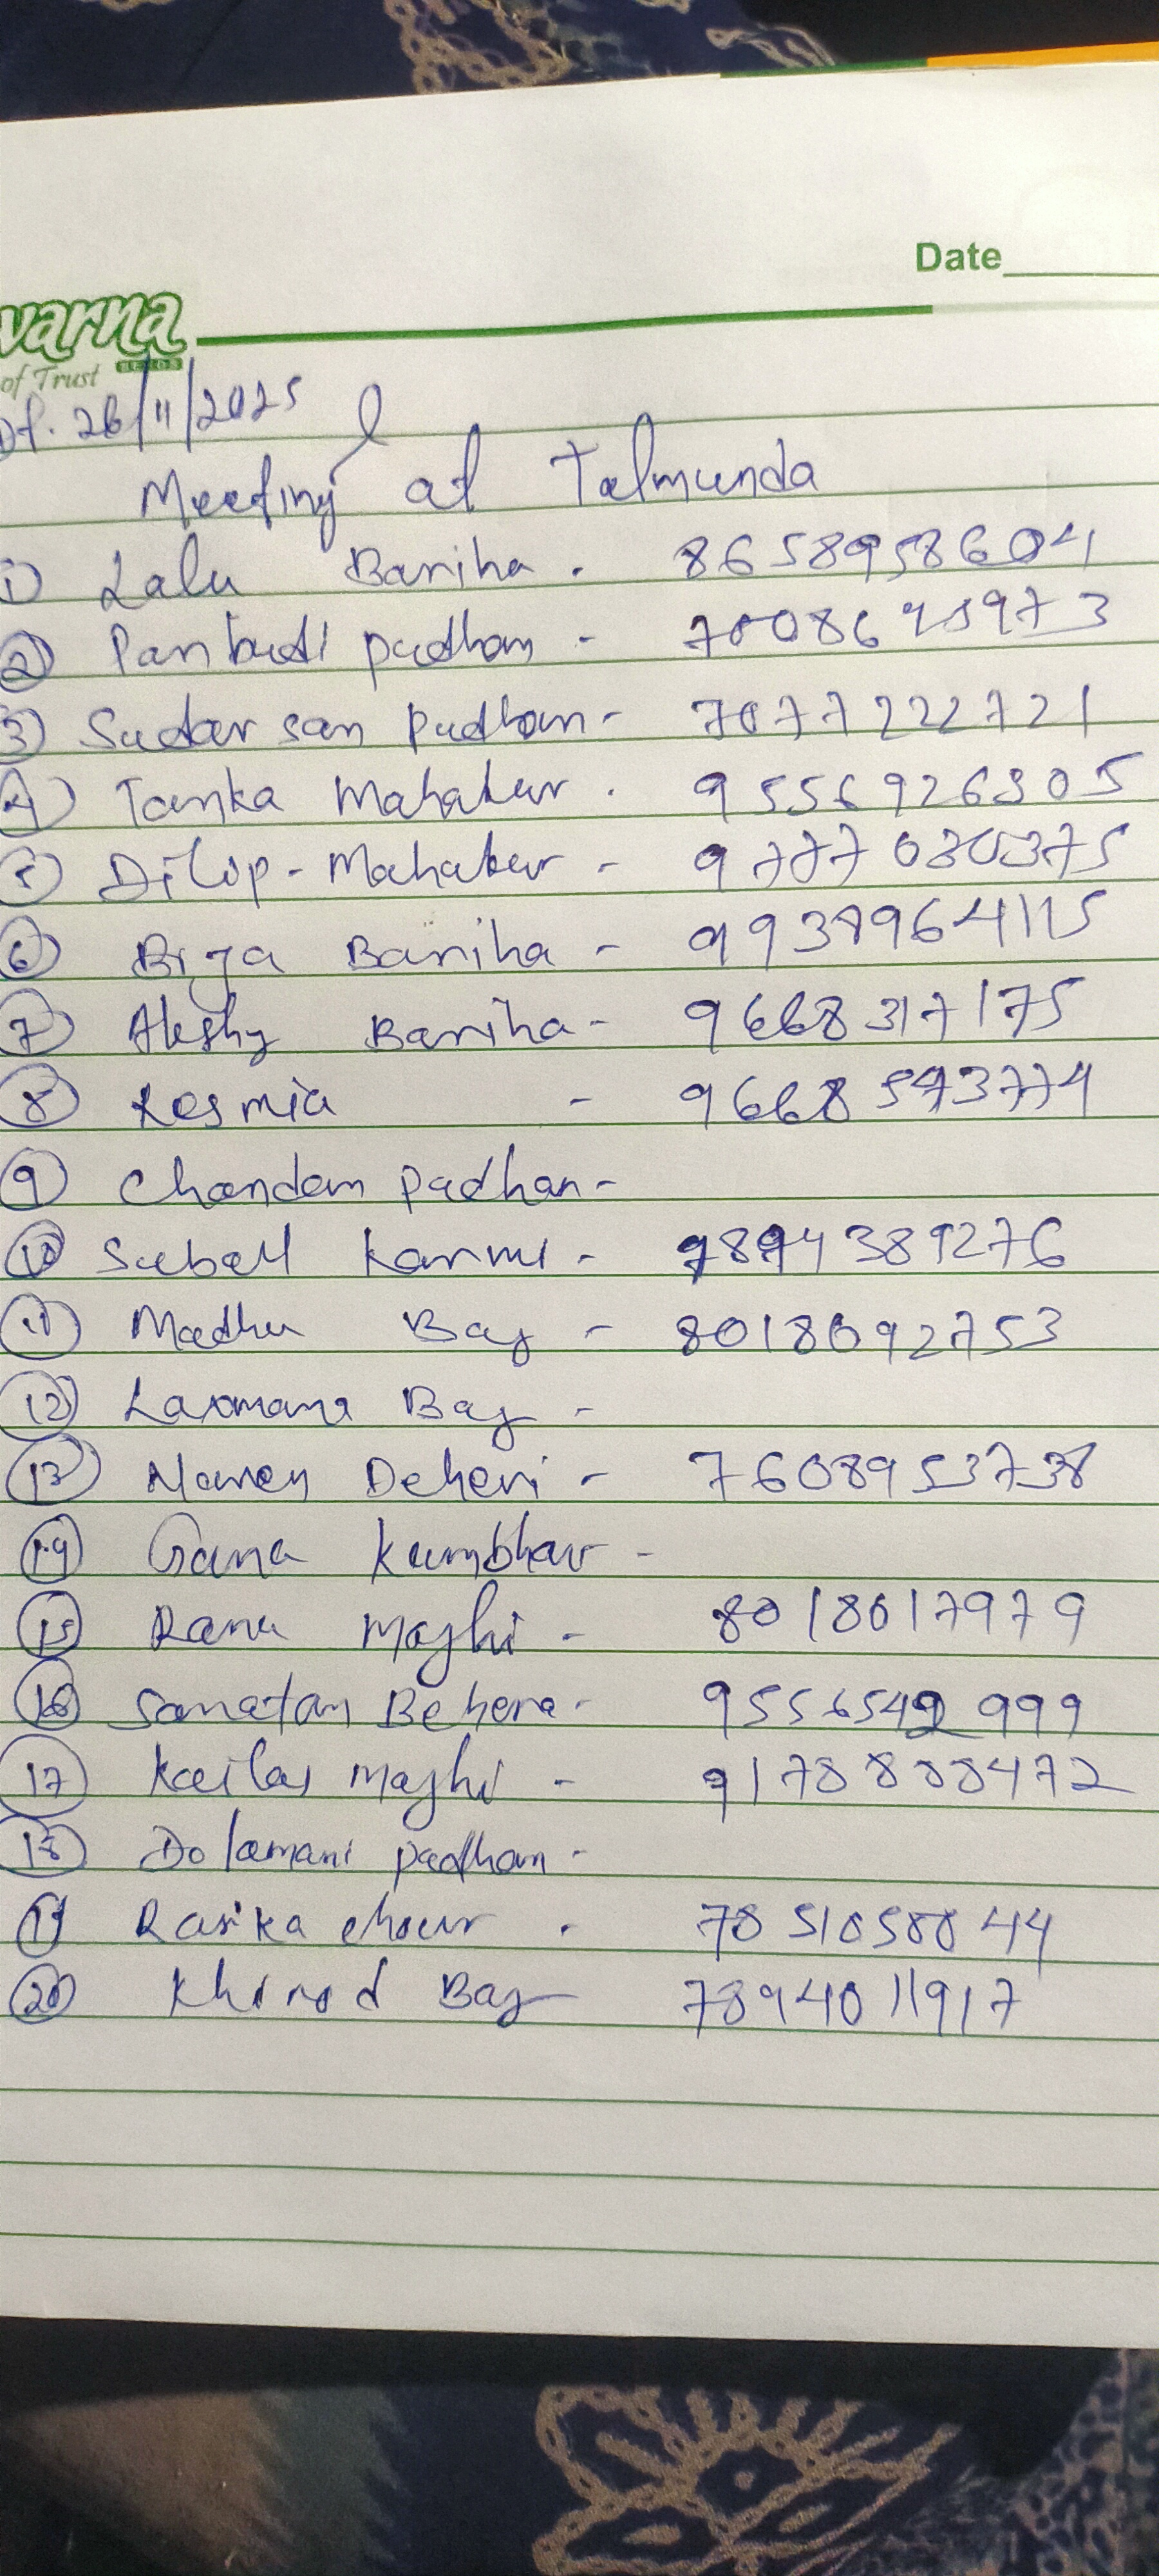 Date
varna
of Trust SEEDS
Dt. 26/11/2025
Meeting at Talmunda
1) Lalu Bariha . 8658958604
2) Panbudi padhan - 7008698973
3) Sudarsan Padhan - 7077222721
4) Tanka Mahakur . 9556926305
5) Dilip - Mahakur - 9777030375
6) Biza Bariha - 9937964115
7) Akshy Bariha - 9668317175
8) Resmia - 9668593774
9) Chandan padhan -
10) Suball Karmi - 7894389276
11) Madhu Bag - 8018092753
12) Laxmana Bag -
13) Naren Deheri - 7608953738
14) Gana Kumbhar -
15) Rana Majhi - 8018017979
16) Sanatan Behera - 9556542999
17) Kailas Majhi - 9178888472
18) Dolamani padhan -
19) Rasika chour . 7851058844
20) Khirod Bag 7894011917